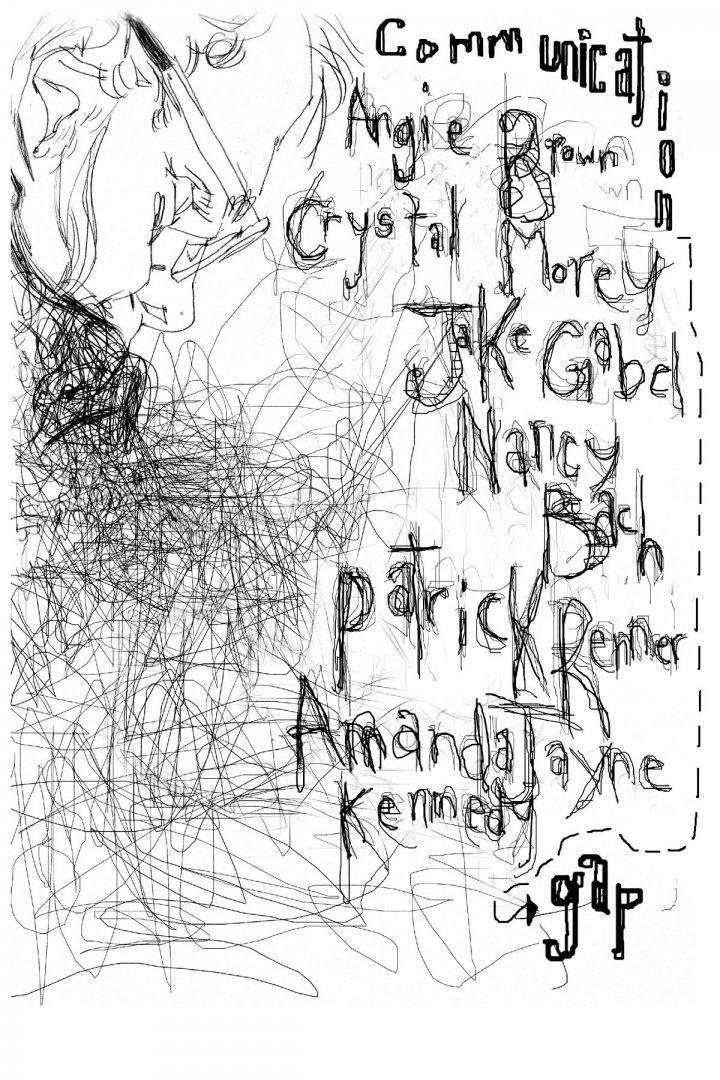 Communication
Angie Brown
Crystal Morey
Jake Gabel
Nancy
Bach
Patrick Renner
Amanda Jayne
Kennedy
gap